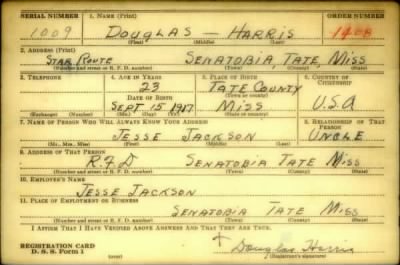 SERIAL NUMBER 1. NAME (Print) ORDER NUMBER
1009 DOUGLAS — HARRIS 1408
(First) (Middle) (Last)
2. ADDRESS (Print)
STAR ROUTE SENATOBIA TATE MISS
(Number and street or R. F. D. number) (Town) (County) (State)
3. TELEPHONE 4. AGE IN YEARS 5. PLACE OF BIRTH 6. COUNTRY OF CITIZENSHIP
23 TATE COUNTY
DATE OF BIRTH (Town or county)
SEPT 15 1917 MISS U.S.A
(Exchange) (Number) (Mo.) (Day) (Yr.) (State or country)
7. NAME OF PERSON WHO WILL ALWAYS KNOW YOUR ADDRESS 8. RELATIONSHIP OF THAT PERSON
JESSE JACKSON UNCLE
(Mr., Mrs., Miss) (First) (Middle) (Last)
9. ADDRESS OF THAT PERSON
R.F.D SENATOBIA TATE MISS
(Number and street or R. F. D. number) (Town) (County) (State)
10. EMPLOYER'S NAME
JESSE JACKSON
11. PLACE OF EMPLOYMENT OR BUSINESS
SENATOBIA TATE MISS
(Number and street or R. F. D. number) (Town) (County) (State)
I AFFIRM THAT I HAVE VERIFIED ABOVE ANSWERS AND THAT THEY ARE TRUE.
REGISTRATION CARD
D. S. S. Form 1 Douglas Harris
(over) (Registrant's signature)